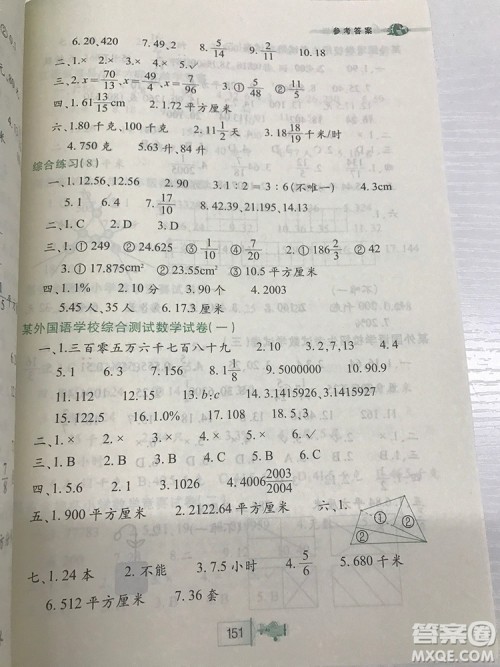 参考答案
6.20,420 7.49,2 8.5/14 9.2/11 10.18
二、1.× 2.× 3.× 4.× 5.×
三、2.x=70/13,x=49/4,x=7/96 3.①5/48 ②11/5
四、1.61 13/15cm 2.1.72平方厘米
六、1.80千克、100千克 2.11 1/2天 3.18 18/19千米/时
4.750克 5.63升、84升
综合练习(8)
一、1.12.56、12.56 2.90 3.1:2=3:6(不唯一) 4.3cm
5.1.2 6.2,0 7.17/10 8.42.39,21.195,14.13
二、1.C 2.D
三、1.①249 ②24.625 ③1/10 ④7/20 2.①186 2/3 ②42
3.①17.875cm² ②20cm² ③10.5平方厘米
四、1.2% 2.10分 3.90% 4.2003
5.45人、35人 6.17.3厘米
某外国语学校综合测试数学试卷(一)
一、1.三百零五万六千七百八十九 2.10 3.2 4.12
5.1 6.3 7.156 8.1 1/8 9.5000000 10.5
11.112 12.5 13.24 14.3.1415926,3.1415927
15.122,5 16.1.0% 17.b:c 18.5,3
二、1.× 2.× 3.√ 4.× 5.×
三、1.B 2.B 3.C 4.B 5.B
四、1.5.6 2.1 3.24 4.4006 2003/2004
五、1.900平方厘米 2.2122.64平方厘米 六、1.
① ② ②
七、1.24本 2.不能 3.7.5小时 4.5/6 5.680千米
6.512平方厘米 7.36套
151
答案圈
MXQE.COM